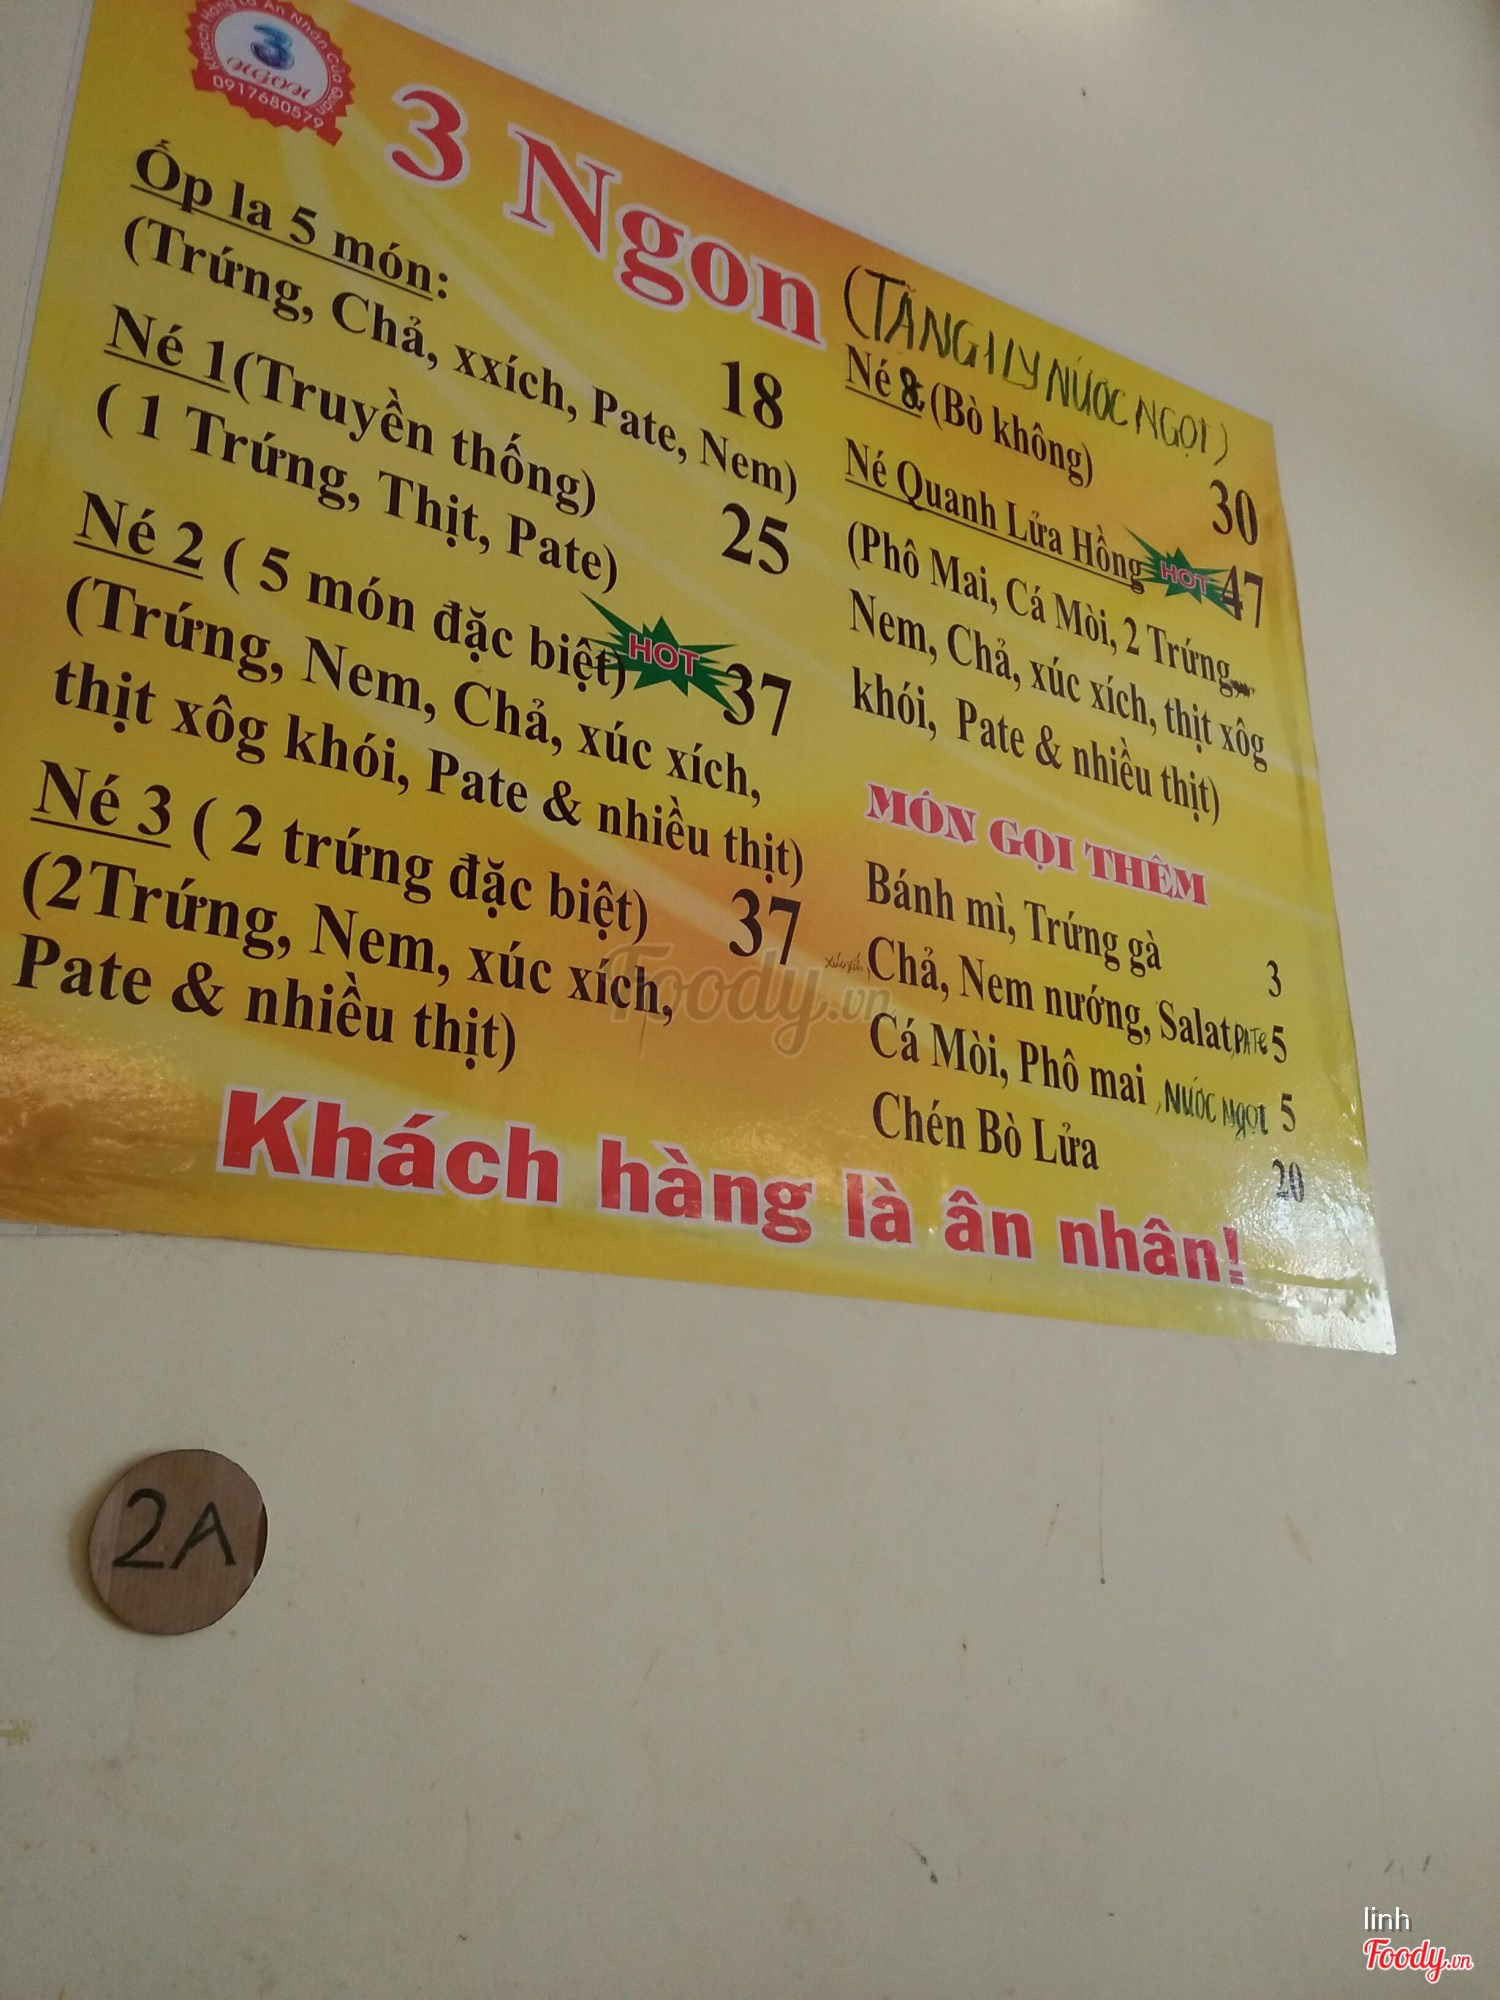 Khách Hàng Là Ân Nhân Của Quán
3
NGON
0917680579
3 Ngon
(TẶNG 1 LY NƯỚC NGỌT)
Ốp la 5 món: 18
(Trứng, Chả, xxích, Pate, Nem)
Né 1(Truyền thống) 25
( 1 Trứng, Thịt, Pate)
Né 2 ( 5 món đặc biệt) HOT 37
(Trứng, Nem, Chả, xúc xích,
thịt xôg khói, Pate & nhiều thịt)
Né 3 ( 2 trứng đặc biệt) 37
(2Trứng, Nem, xúc xích,
Pate & nhiều thịt)
Né 8 (Bò không) 30
Né Quanh Lửa Hồng HOT 47
(Phô Mai, Cá Mòi, 2 Trứng,
Nem, Chả, xúc xích, thịt xôg
khói, Pate & nhiều thịt)
MÓN GỌI THÊM
Bánh mì, Trứng gà 3
xúc xích, Chả, Nem nướng, Salat, PATE 5
Cá Mòi, Phô mai, NƯỚC NGỌT 5
Chén Bò Lửa 20
Khách hàng là ân nhân!
Foody.vn
2A
linh
Foody.vn